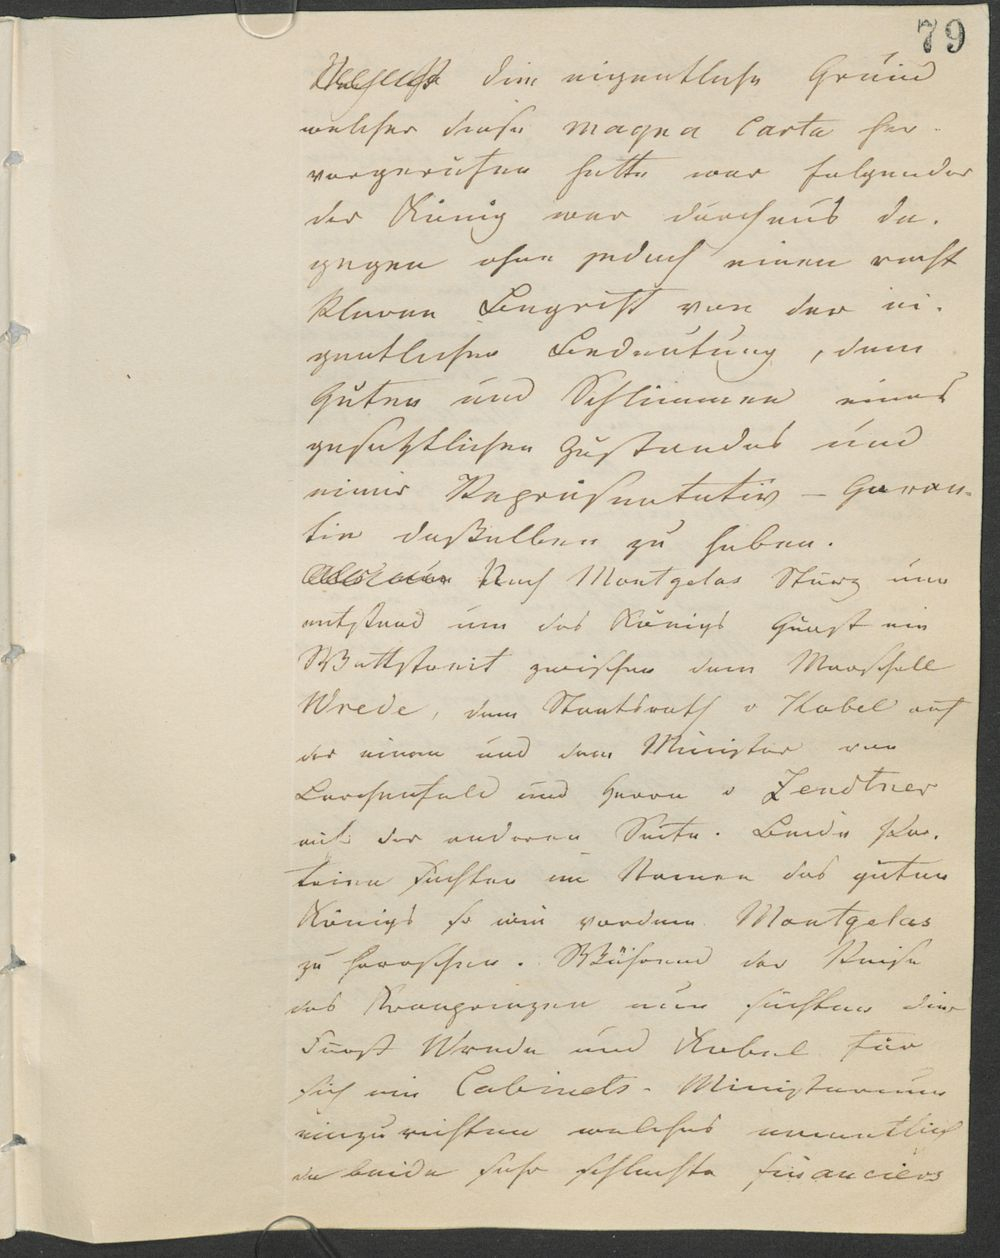 79
Der eigentliche Grund
welcher diese magna Carta her-
vorgerufen hatte war folgender
der König war durchaus da-
gegen ohne jedoch einen recht
klaren Begriff von der ei-
gentlichen Bedeutung, dem
Guten und Schlimmen eines
gesetzlichen Zustandes und
einer Repräsentativ - Garan-
tie desselben zu haben.
Nach Montgelas Sturz nun
entstand um des Königs Gunst ein
Wettstreit zwischen dem Marschall
Wrede, dem Staatsrath v Kobel auf
der einen und dem Minister von
Lerchenfeld und Herrn v Zendtner
auf der anderen Seite. Beide Par-
teien suchten im Namen des guten
Königs so wie vordem Montgelas
zu herrschen. Während der Reise
des Kronprinzen nun suchten die
Fürst Wrede und Kobel für
sich ein Cabinets-Ministerium
einzurichten welches namentlich
da beide sehr schlechte financiers